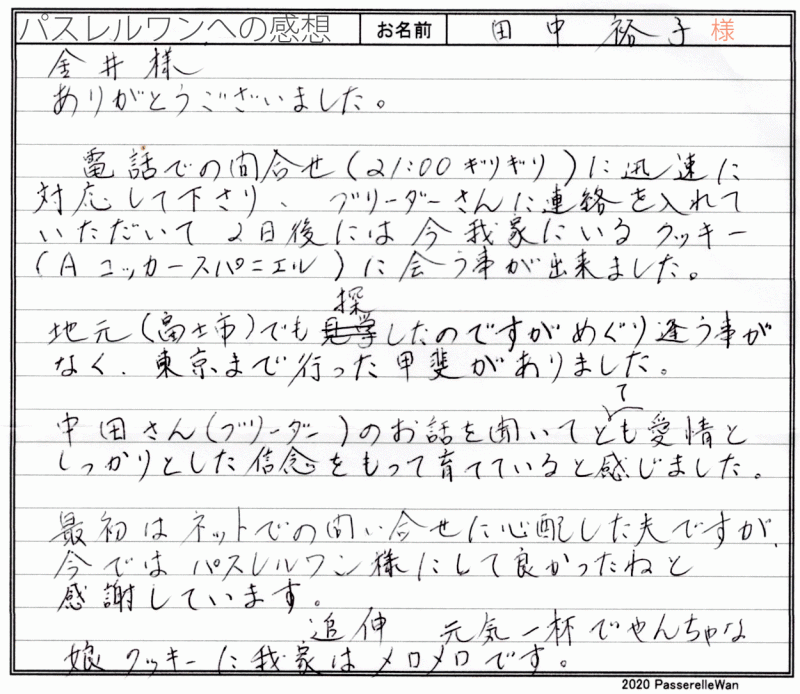 パスレルワンへの感想 お名前 田中 裕子 様
金井様
ありがとうございました。
電話での問合せ(21:00ギリギリ)に迅速に
対応して下さり、ブリーダーさんに連絡を入れて
いただいて2日後には今我家にいるクッキー
(Aコッカースパニエル)に会う事が出来ました。
探
地元(富士市)でも見学したのですがめぐり逢う事が
なく、東京まで行った甲斐がありました。
て
中田さん(ブリーダー)のお話を聞いてとも愛情と
しっかりとした信念をもって育てていると感じました。
最初はネットでの問い合せに心配した夫ですが、
今ではパスレルワン様にして良かったねと
感謝しています。
追伸 元気一杯でやんちゃな
娘クッキーに我家はメロメロです。
2020 PasserelleWan